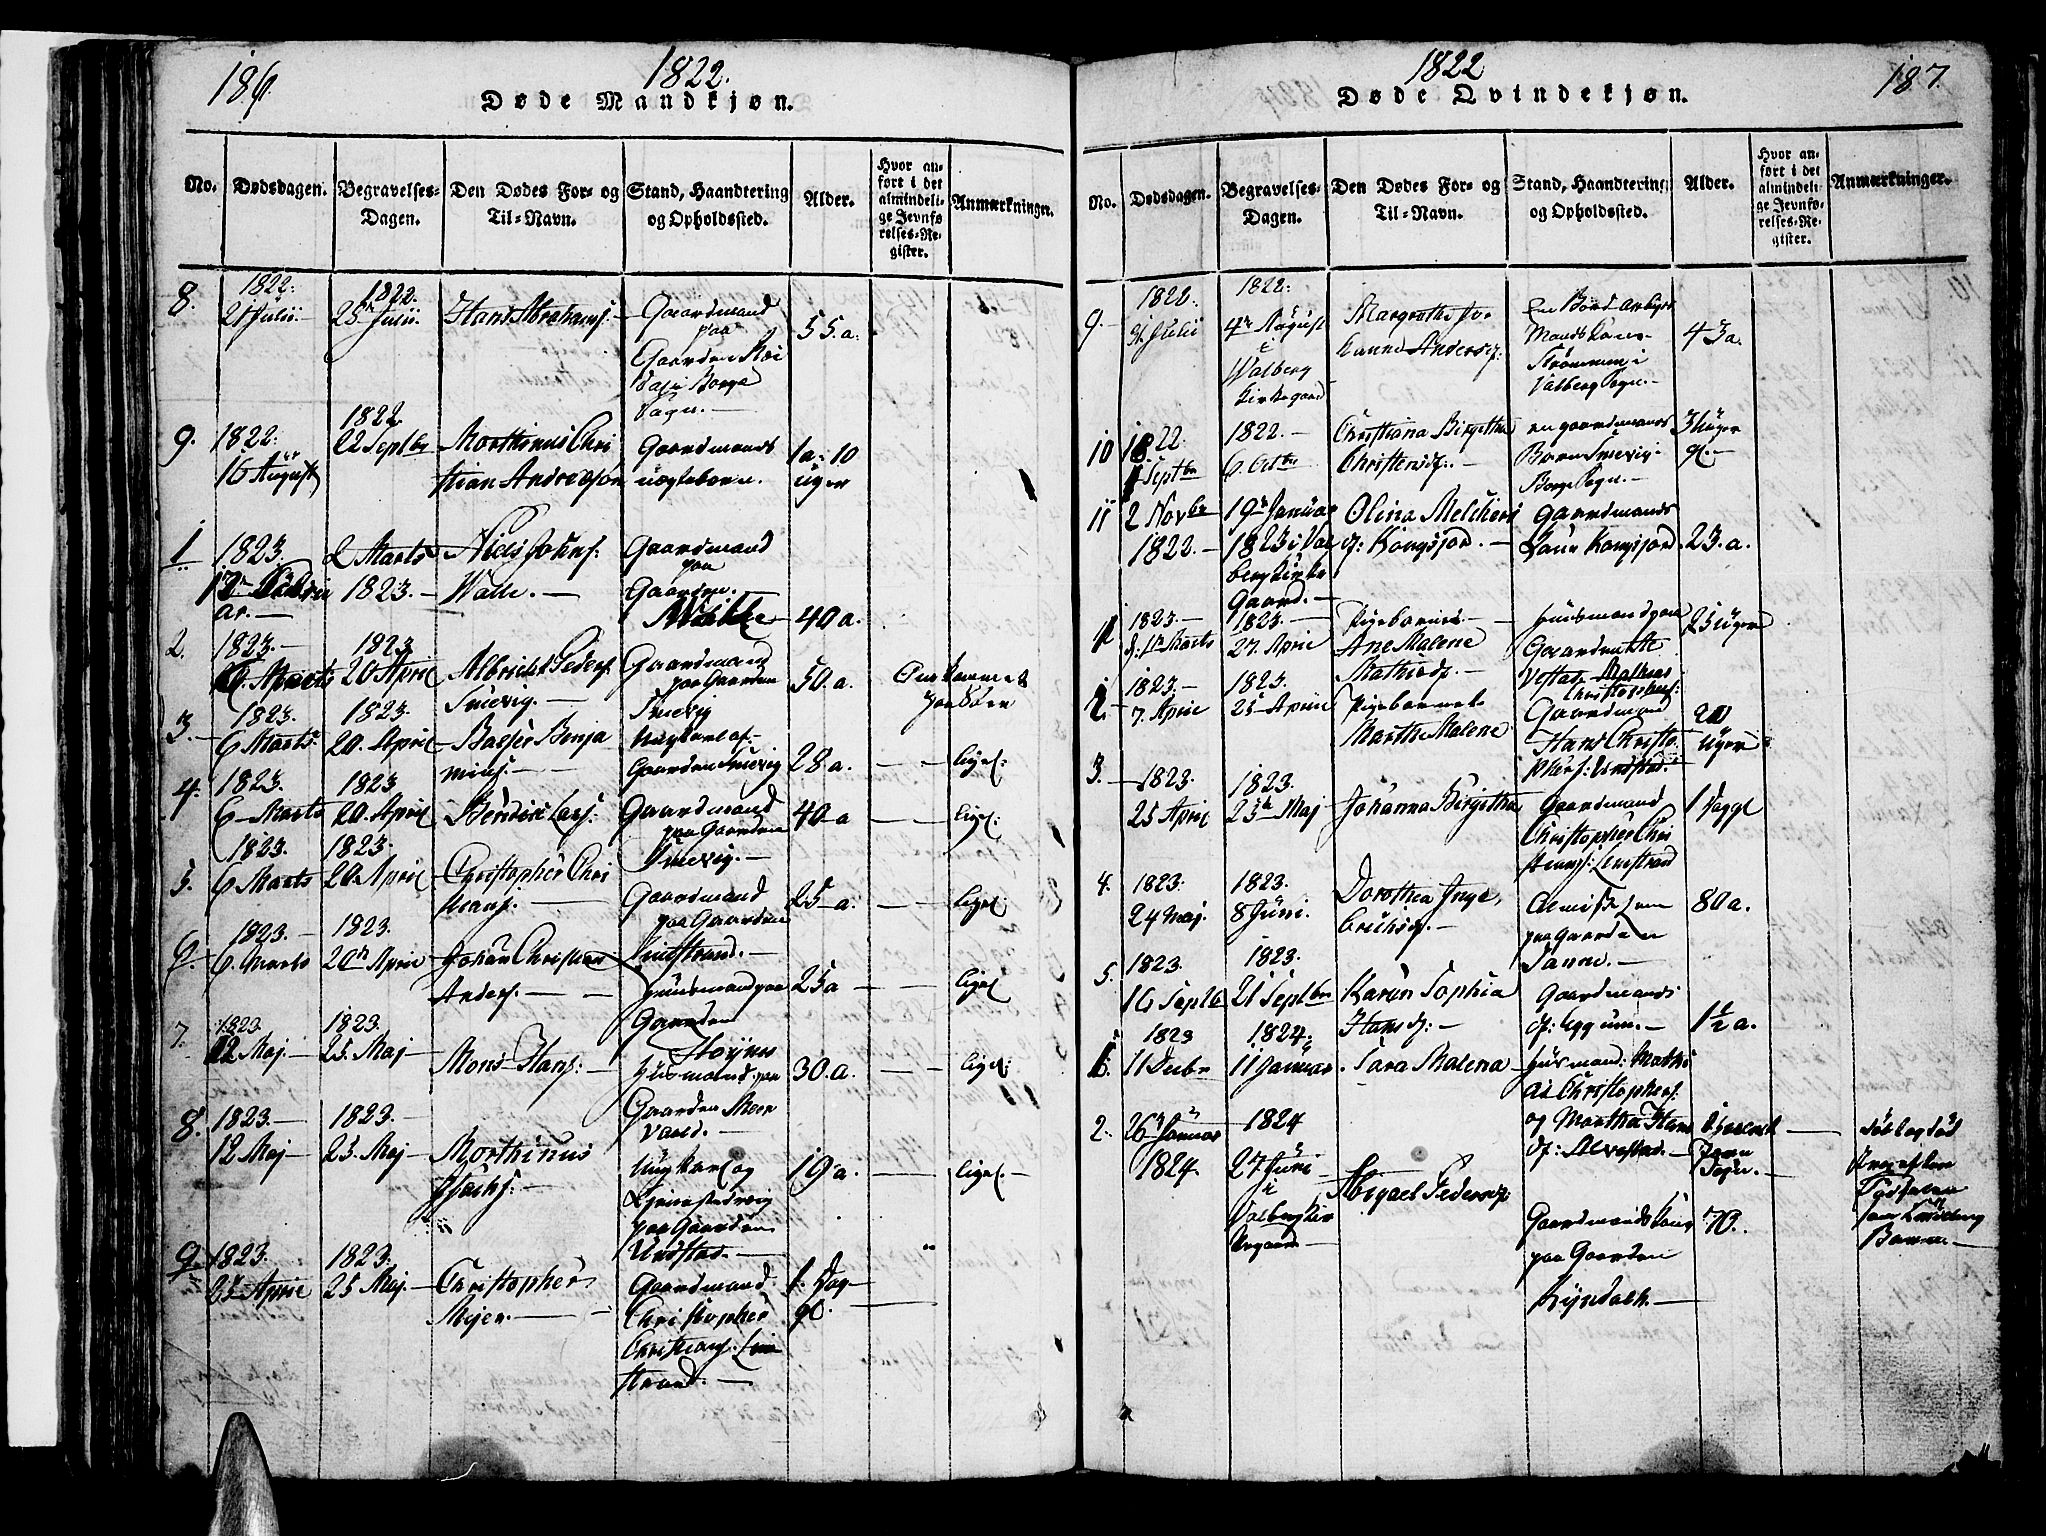 186.
1822.
Døde Mandkjøn.
No.
Dødsdagen.
Begravelses-
Dagen.
Den Dødes For- og
Til-Navn.
Stand, Haandtering
og Opholdssted.
Alder.
Hvor an-
ført i det
almindeli-
ge Jevnfø
relses-Re-
gister.
Anmærkninger.
8.
1822.
21 Julii.
1822.
25 Julii.
Hans Abrahams:
Gaardmand
paa
Gaarden
Borge
Sogn.
55. a.
9.
1822.
16 August
1822.
22 Septbr
Morthinus Chri
stian Andreasson
Gaardmands
1 a: 10
uger
1
1823.
ar.
2 Marts
1823.
Niels Johns:
Walle.
Gaardmand
paa
Gaarden.
Walle
40 a.
2.
1823.
6 Marts
1823
20 April
Albricht Peders.
Smevig.
Gaardmand
paa Gaarden
Smevig
50. a.
Omkommet
paa Søen
3.
1823.
6 Marts
1823.
20. April
Benja
mins:
Ungkarl af
Gaarden Smevig
28. a.
liges:
4.
1823.
6 Marts
1823
20. April
Lars:
Gaardmand
paa Gaarden
Smevig.
40 a
liges:
5.
1823.
6 Marts
1823.
20 April
Christopher Chri
stians:
Gaardmand
paa Gaarden
Limstrand.
25 a.
liges:
6.
1823.
6. Marts
1823.
20 April
Johan Christian
Anders.
Huusmand paa
Gaarden
25 a
liges
7.
1823
12 Maj
1823.
25. Maj
Mons Hans:
Husmand paa
Gaarden
30. a.
liges:
8.
1823.
12 Maj
1823.
25. Maj
Morthinus
Ungkarl og
paa Gaarden
Undstad.
19 a.
liges.
9
1823.
25 April
1823.
25 Maj.
Christopher
Mejer.
Gaardmand
Christopher
Christians: Lim
strand.
1. Dag
gl.
187.
1822
Døde Qvindekjøn.
No.
Dødsdagen.
Begravelses-
Dagen.
Den Dødes For- og
Til-Navn.
Stand, Haandtering
og Opholdssted.
Alder.
Hvor an-
ført i det
almindeli-
ge Jevnfø-
relses-Re-
gister.
Anmærkninger.
9
1822.
31 Julii
1822.
4 August
i
Walberg
Kirkegaard
Margrethe Jo-
hanna Andersd:
Mands Kone
Strømmen i
Valberg Sogn.
43 a.
10
1822
1 Septbr
1822.
6. Octbr
Christiana Birgitha
Christensd:
en gaardmands
Barn Smevig
Borge Sogn.
3 Uger
gl.
11
2 Novbr
1822.
19 Januar
1823 i Val
berg Kirke
Gaard.
Olina Melchiors
d: Kongsjord.
Gaardmands
Kone Kongsjord
23. a.
1
1823.
Marts
1823.
27. April
Pigebarnet
Ane Malene
Mathisd.
Huusmand paa
Gaarden
Vestad Mathias
Christophers:
25 Uger
2
1823.
7. April
1823.
25 April
Pigebarnet
Marthe Malene
Gaardmand
Hans Christo
phers: Undstad.
20
Uger
3.
1823.
25 April
1823.
25 Maj
Johanna Birgitha
Gaardmand
Christopher Chri
stians: Limstrand
1 Dag gl
4.
1823.
24 Maj.
1823.
8 Juni.
Dorothea Inge,
Erichsd.
paa Gaarden
80 a.
5.
1823.
16 Septb
1823.
21 Septbr
Karen Sophia
Hans d:
Gaardmands
d: Eggum.
1½ a.
1823
11 Decbr
1824
11 Januar
Sara Malena
Husmand: Mathi
as Christophers:
og Martha Hans
d: Alvestad.
2.
26 Januar
1824.
1824
27 Juni
i
Valberg Kir
kegaard
Abigael Pedersd:
Gaardmands Kone
paa Gaarden
70.